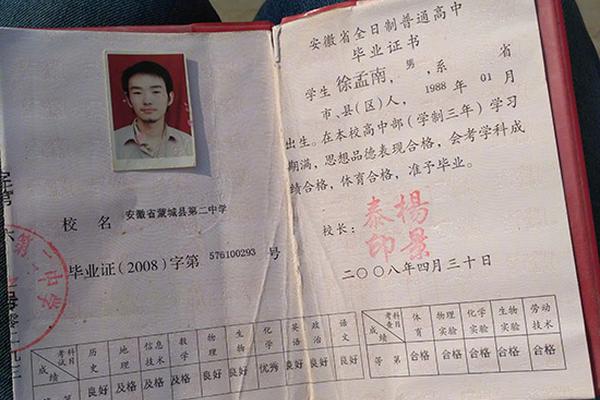 安徽省全日制普通高中
毕业证书
学生 徐孟南，男，系 省
市、县(区)人，1988 年 01 月
出生。在本校高中部（学制三年）学习
期满，思想品德表现合格，会考学科成
绩合格，体育合格，准予毕业。
校长：
泰楊
印景
二〇〇八年四月三十日
校 名 安徽省蒙城县第二中学
毕业证(2008)字第 576100293 号
第二中学
考试科目 历史 地理 信息技术 数学 物理 生物 化学 英语 政治 语文
成绩 良好 及格 及格 及格 良好 良好 优秀 良好 良好 良好
考查科目 体育 物理实验 化学实验 生物实验 劳动技术
成绩
等第 合格 合格 合格 合格 合格